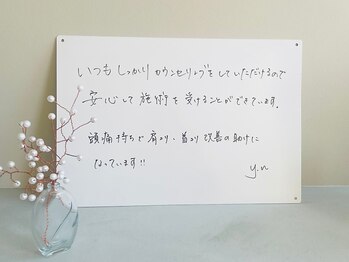 いつもしっかりカウンセリングをしていただけるので
安心して施術を受けることができています.
頭痛持ちで肩コリ、首コリ改善の助けに
なっています!!
y.n